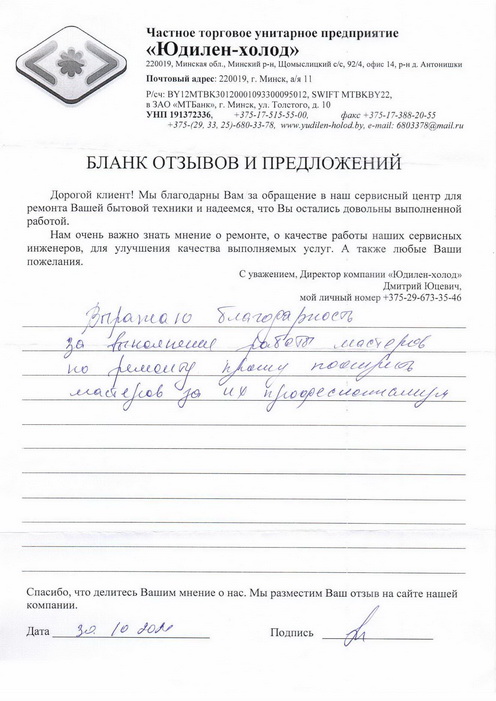 Частное торговое унитарное предприятие
«Юдилен-холод»
220019, Минская обл., Минский р-н, Щомыслицкий с/с, 92/4, офис 14, р-н д. Антонишки
Почтовый адрес: 220019, г. Минск, а/я 11
Р/сч: BY12MTBK30120001093300095012, SWIFT MTBKBY22,
в ЗАО «МТБанк», г. Минск, ул. Толстого, д. 10
УНП 191372336, +375-17-515-55-00, факс +375-17-388-20-55
+375-(29, 33, 25)-680-33-78, www.yudilen-holod.by, e-mail: 6803378@mail.ru
БЛАНК ОТЗЫВОВ И ПРЕДЛОЖЕНИЙ
Дорогой клиент! Мы благодарны Вам за обращение в наш сервисный центр для
ремонта Вашей бытовой техники и надеемся, что Вы остались довольны выполненной
работой.
Нам очень важно знать мнение о ремонте, о качестве работы наших сервисных
инженеров, для улучшения качества выполняемых услуг. А также любые Ваши
пожелания.
С уважением, Директор компании «Юдилен-холод»
Дмитрий Юцевич,
мой личный номер +375-29-673-35-46
Выражаю благодарность
за выполнение работ мастеров
по ремонту прошу поощрить
мастеров за их профессионализм
Спасибо, что делитесь Вашим мнение о нас. Мы разместим Ваш отзыв на сайте нашей
компании.
Дата 30.10 2021 Подпись